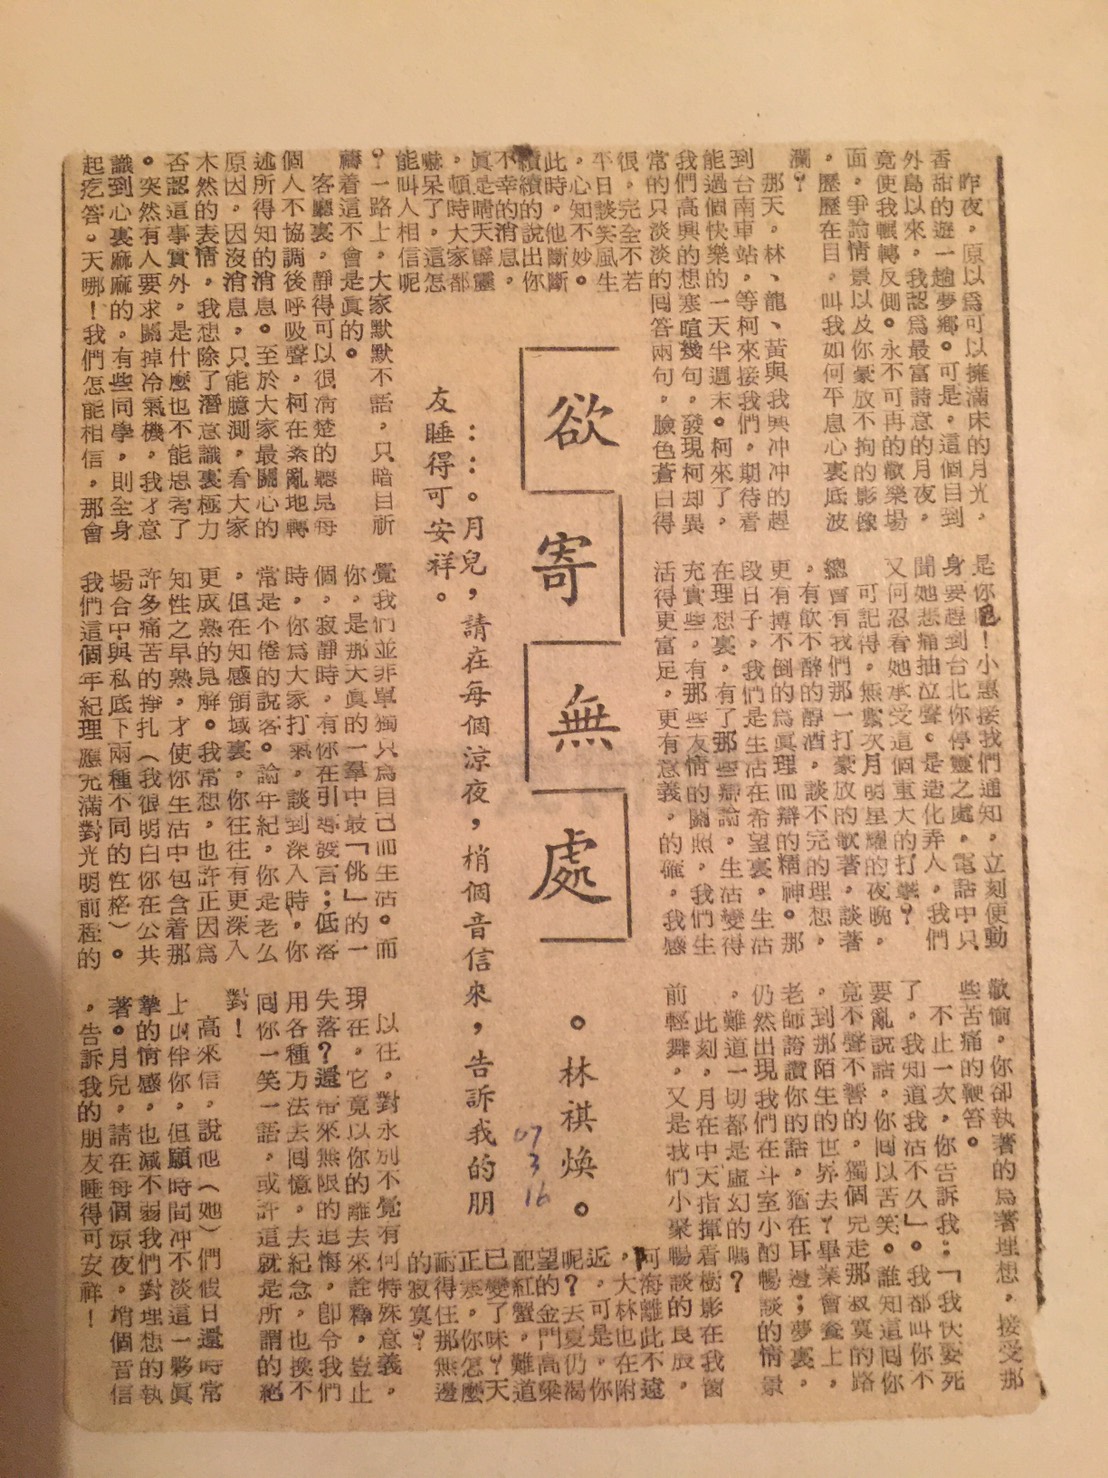 昨夜,原以爲可以擁滿床的月光,
香甜的遊一趟夢鄉。可是,這個目到
外島以來,我認爲最富詩意的月夜,
竟使我輾轉反側。永不可再的歡樂場
面,爭論情景以及你豪放不拘的影像
,歷歷在目,叫我如何平息心裏底波
瀾?
那天,林、龍、黃與我興冲冲的趕
到台南車站,等柯來接我們,期待着
能過個快樂的一天半週末。柯來了,
我們高興的想寒暄幾句,發現柯却異
常的只淡淡的囘答兩句,臉色蒼白得
很,完全不若
平日談笑風生
,心知不妙。
此時,他斷斷
續續的說出你
不幸的消息,
眞是晴天霹靂
,頓時大家都
嚇呆了,這怎
能叫人相信呢
?一路上,大家默默不話,只暗自祈
禱着這不會是眞的。
客廳裏,靜得可以很清楚的聽見每
個人不協調後呼吸聲,柯在紊亂地轉
述所得知的消息。至於大家最關心的
原因,因沒消息,只能臆測,看大家
木然的表情,我想除了潛意識裏極力
否認這事實外,是什麼也不能思考了
。突然有人要求關掉冷氣機,我才意
識到心裏麻麻的,有些同學,則全身
起疙答。天哪!我們怎能相信,那會
欲寄無處
。林祺煥。
07 3 16
::。月兒,請在每個涼夜,梢個音信來,告訴我的朋
友睡得可安祥。
是你!小惠接我們通知,立刻便動
身要趕到台北你停靈之處,電話中只
聞她悲痛抽泣聲。是造化弄人,我們
又何忍看她承受這個重大的打擊?
可記得,無數次月明星耀的夜晚,
總會有我們那一打豪放的歌著,談著
,有飲不醉的醇酒,談不完的理想,
更有搏不倒的爲眞理而辯的精神。那
段日子,我們是生活在希望裏,生活
在理想裏,有了那些辯論,生活變得
充實些,有那些友情的關照,我們生
活得更富足,更有意義,的確,我感
覺我們並非單獨只爲自己而生活。而
你,是那天眞的一羣中最「佻」的一
個,寂靜時,有你在引導發言;低落
時,你爲大家打氣,談到深入時,你
常是不倦的說客。論年紀,你是老么
,但在知感領域裏,你往往有更深入
更成熟的見解。我常想,也許正因爲
知性之早熟,才使你生活中包含着那
許多痛苦的掙扎(我很明白你在公共
場合中與私底下兩種不同的性格)。
我們這個年紀理應充滿對光明前程的
歡愉,你卻執著的爲著理想,接受那
些苦痛的鞭笞。
不止一次,你告訴我:「我快要死
了,我知道我活不久」。我都叫你不
要亂說話,你囘以苦笑。誰知這囘你
竟不聲不響的,獨個兒走那寂寞的路
,到那陌生的世界去?畢業會餐上,
老師誇讚你的話,猶在耳邊;夢裏,
仍然出現我們在斗室小酌暢談的情景
,難道一切都是虛幻的嗎?
此刻,月在中天指揮着樹影在我窗
前輕舞,又是我們小聚暢談的良辰,
阿海離此不遠
,大林也在附
近,可是,你
呢?去夏仍渴
望的金門高粱
配紅蟹,難道
已變了味?天
正寒,你怎麼
耐得住那無邊
的寂寞?
以往,對永別不覺有何特殊意義,
現在,它竟以你的離去來詮釋,豈止
失落?還帶來無限的追悔,卽令我們
用各種方法去囘憶,去紀念,也換不
囘你一笑一語,或許這就是所謂的絕
對!
高來信,說他(她)們假日還時常
上山伴你,但願時間冲不淡這一夥眞
摯的情感,也減不弱我們對理想的執
著。月兒,請在每個涼夜,梢個音信
,告訴我的朋友睡得可安祥!